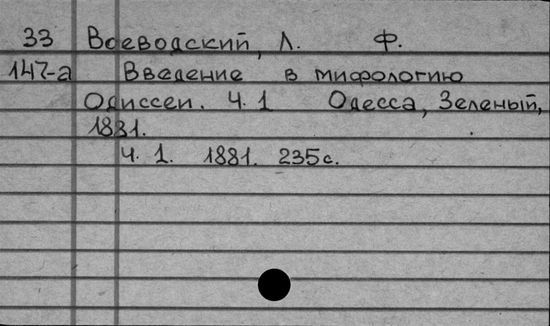 33 Воеводский, Л. Ф.
147-а Введение в мифологию
Одиссеи. Ч. 1 Одесса, Зеленый,
1881.
Ч. 1. 1881. 235с.